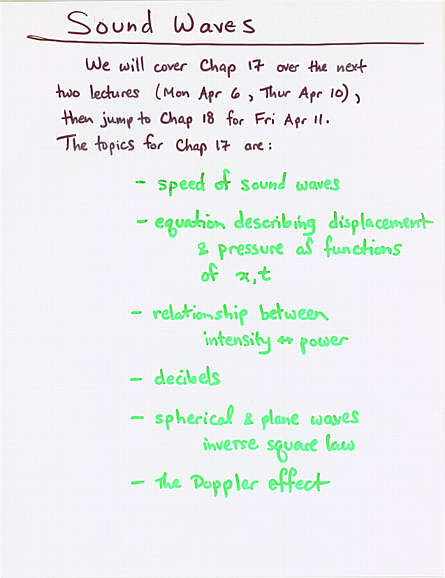 Sound Waves
We will cover Chap 17 over the next
two lectures (Mon Apr 6, Thur Apr 10),
then jump to Chap 18 for Fri Apr 11.
The topics for Chap 17 are:
- speed of sound waves
- equation describing displacement
& pressure as functions
of x,t
- relationship between
intensity ↔ power
- decibels
- spherical & plane waves
inverse square law
- The Doppler effect